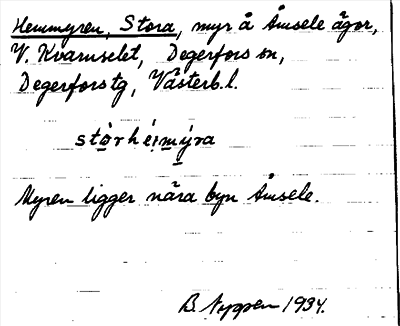 Hemmyren, Stora, myr å Åmsele ägor,
V. Kvarnselet, Degerfors sn,
Degerfors tg, Västerb. l.
stòrhéimýra
Myren ligger nära byn Åmsele.
B. Nyppen 1934.